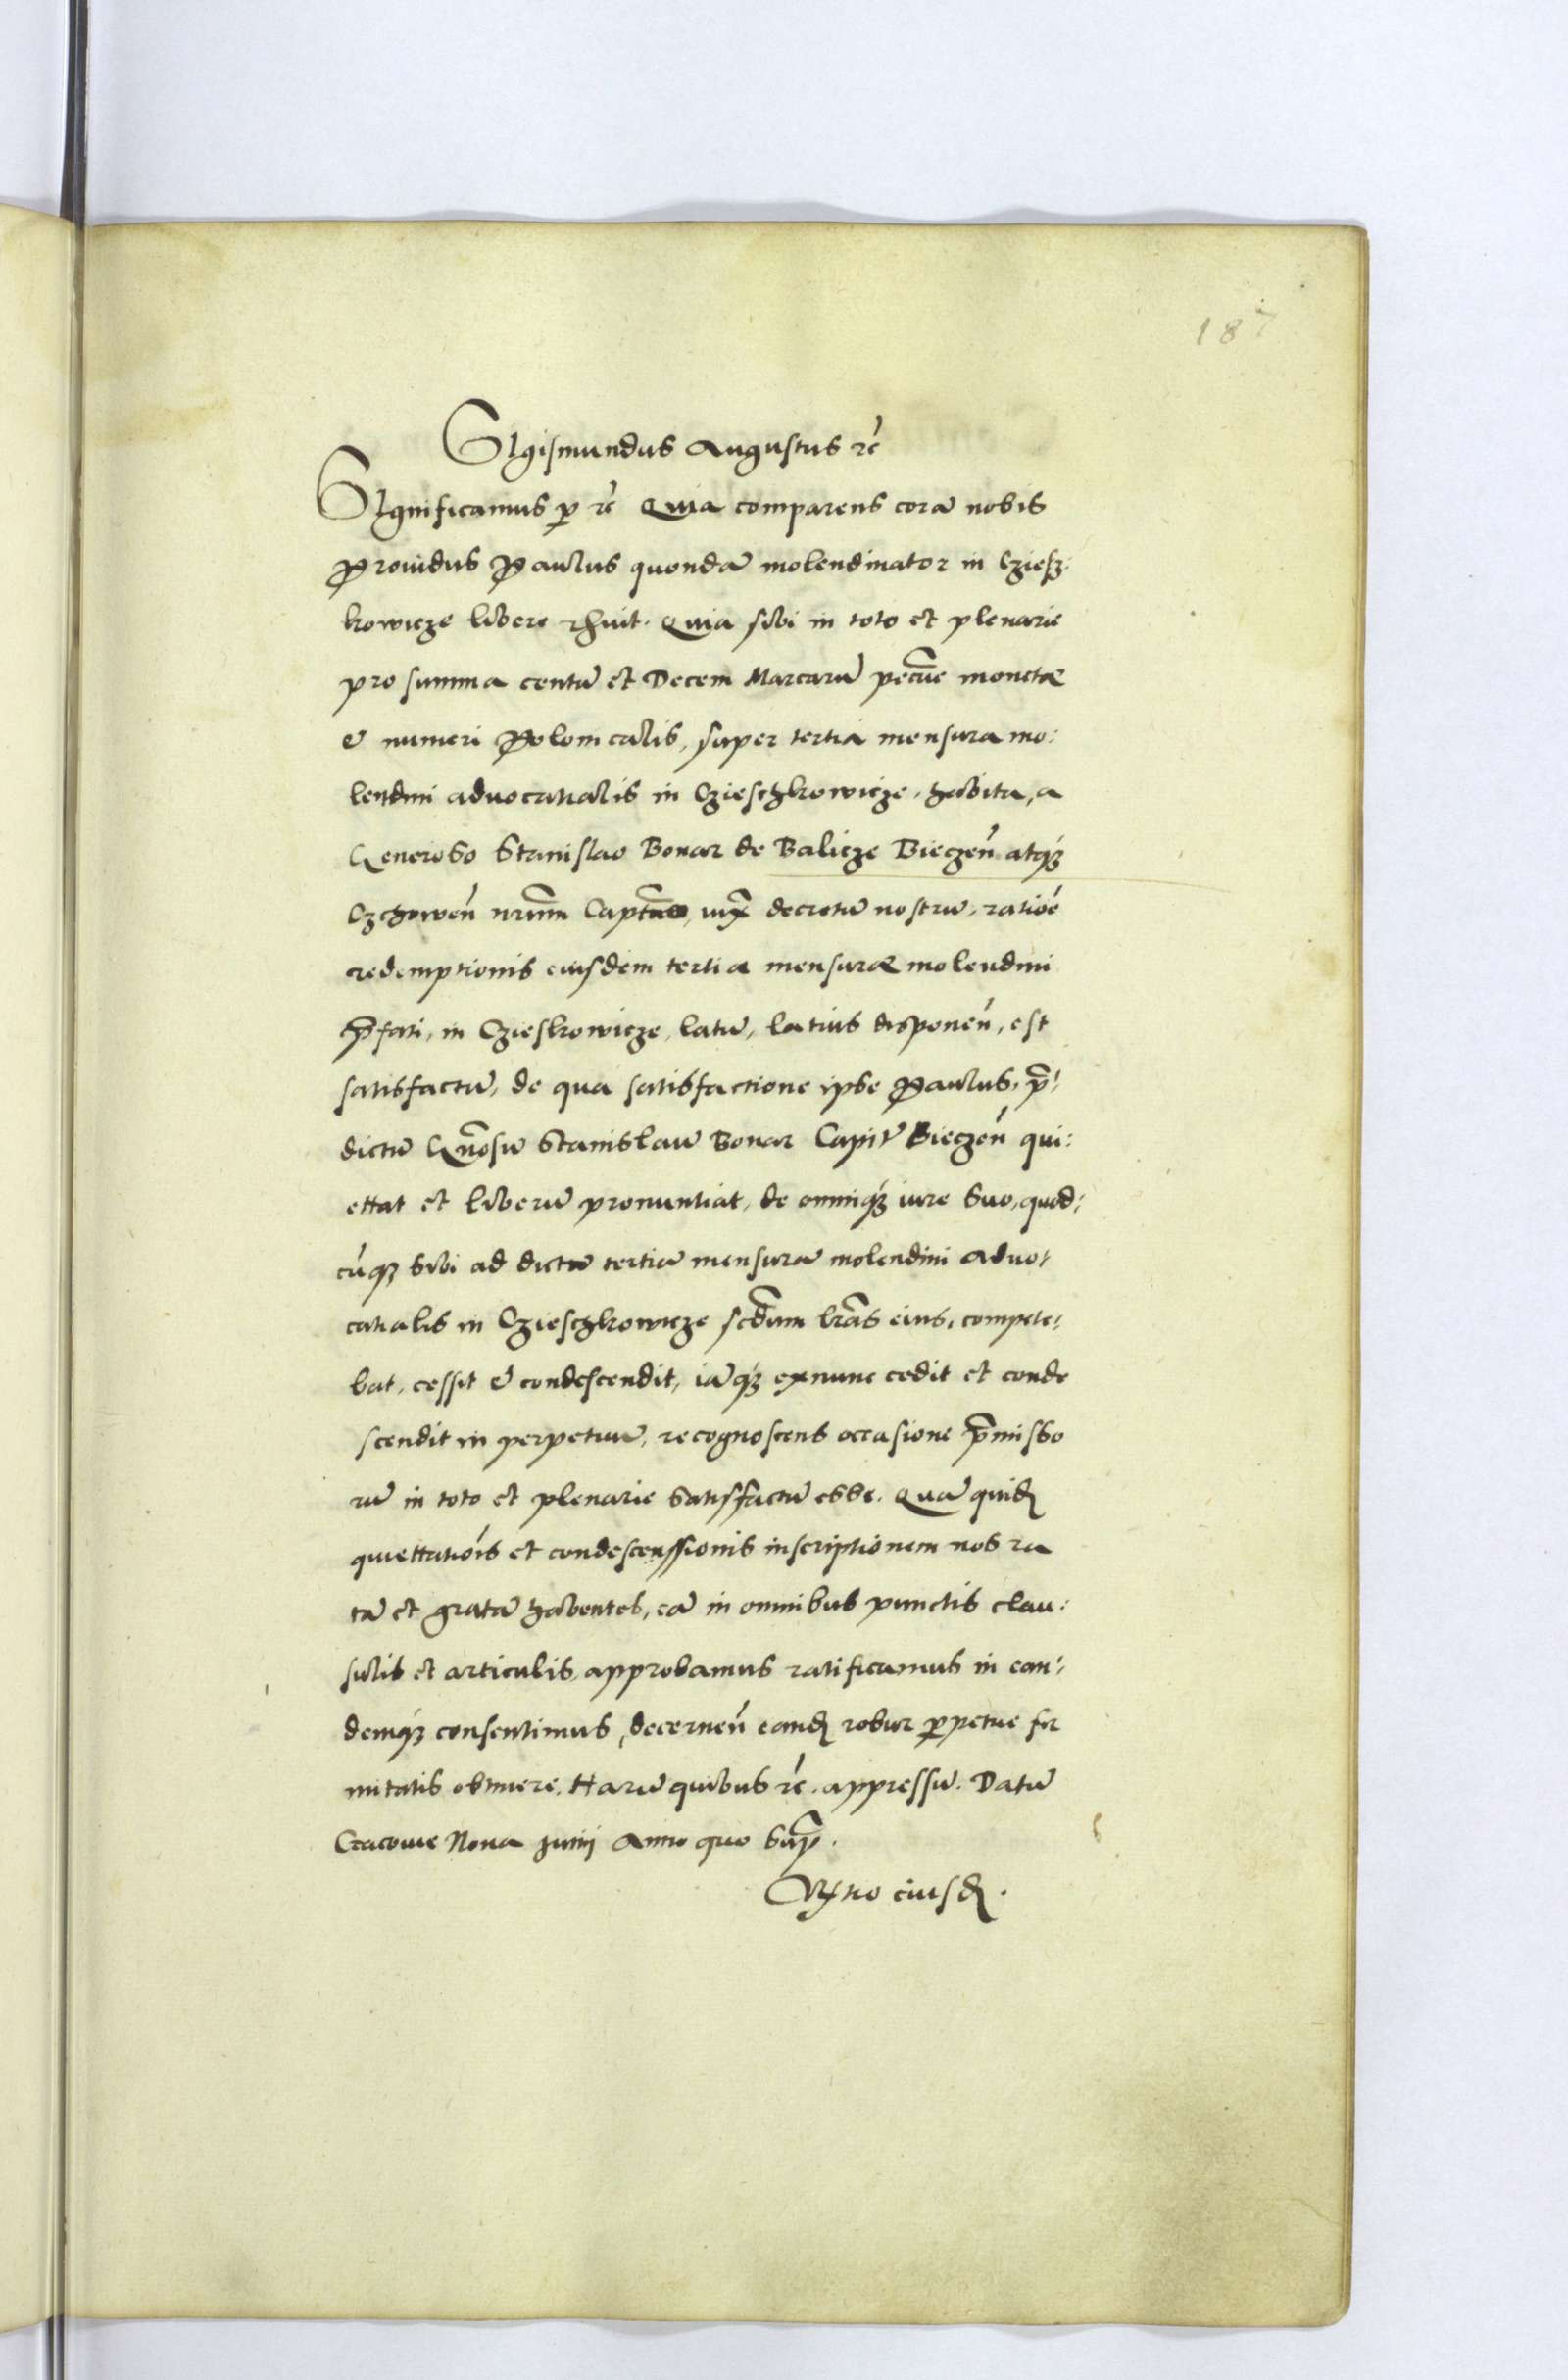 187
SIgismundus Augustus rc̄
SIgnificamus ꝑ rc̄ Quia comparens corā nobis
Prouidus Paulus quondā molendinator in Czies̄z-
kowicze libere rḡuit. Quia sibi in toto et plenarie
pro summa centū et Decem Marcarū pecūe monetæ
& numeri Polonicalis, super tertiā mensura mo:
lendini aduocatialis in Czieschkowicze, habita, a
Generoso Stanislao Bonar de Balicze Bieczeń atqꝫ
Czchoweń nr̄um Captneo, iux̄ decretū nostrū, ratioē
redemptionis eiusdem tertia mensuræ molendini
p̄fati, in Czieskowicze, latū, latius disponeń, est
satisfactū, de qua satisfactione ipse Paulus, p̄:
dictū Gn̄osū Stanislaū Bonar Capitū Bieczeń qui:
ettat et liberū pronuntiat, de omniqꝫ iure suo, quod:
cūqꝫ sibi ad dictā tertiā mensurā molendini aduo:
catialis in Czieschkowicze scd̄um lr̄as eius, compete:
bat, cessit & condescendit, iāqꝫ exnunc cedit et conde
scendit in perpetuū, recognoscens occasione p̄misso
rū in toto et plenarie satisfactū esse. Quā quidē
quiettatiōis et condescenssionis inscriptionem nos ra
tā et gratā habentes, eā in omnibus punctis clau:
sulis et articulis, approbamus ratificamus in ean:
demqꝫ consentimus, decerneń eandē robur ꝑpetue fir
mitatis obtinere. Harū quibus rc̄. appressū. Datū
Cracouie Nona Junij Anno quo sup̄.
R̄tio eiusdē.